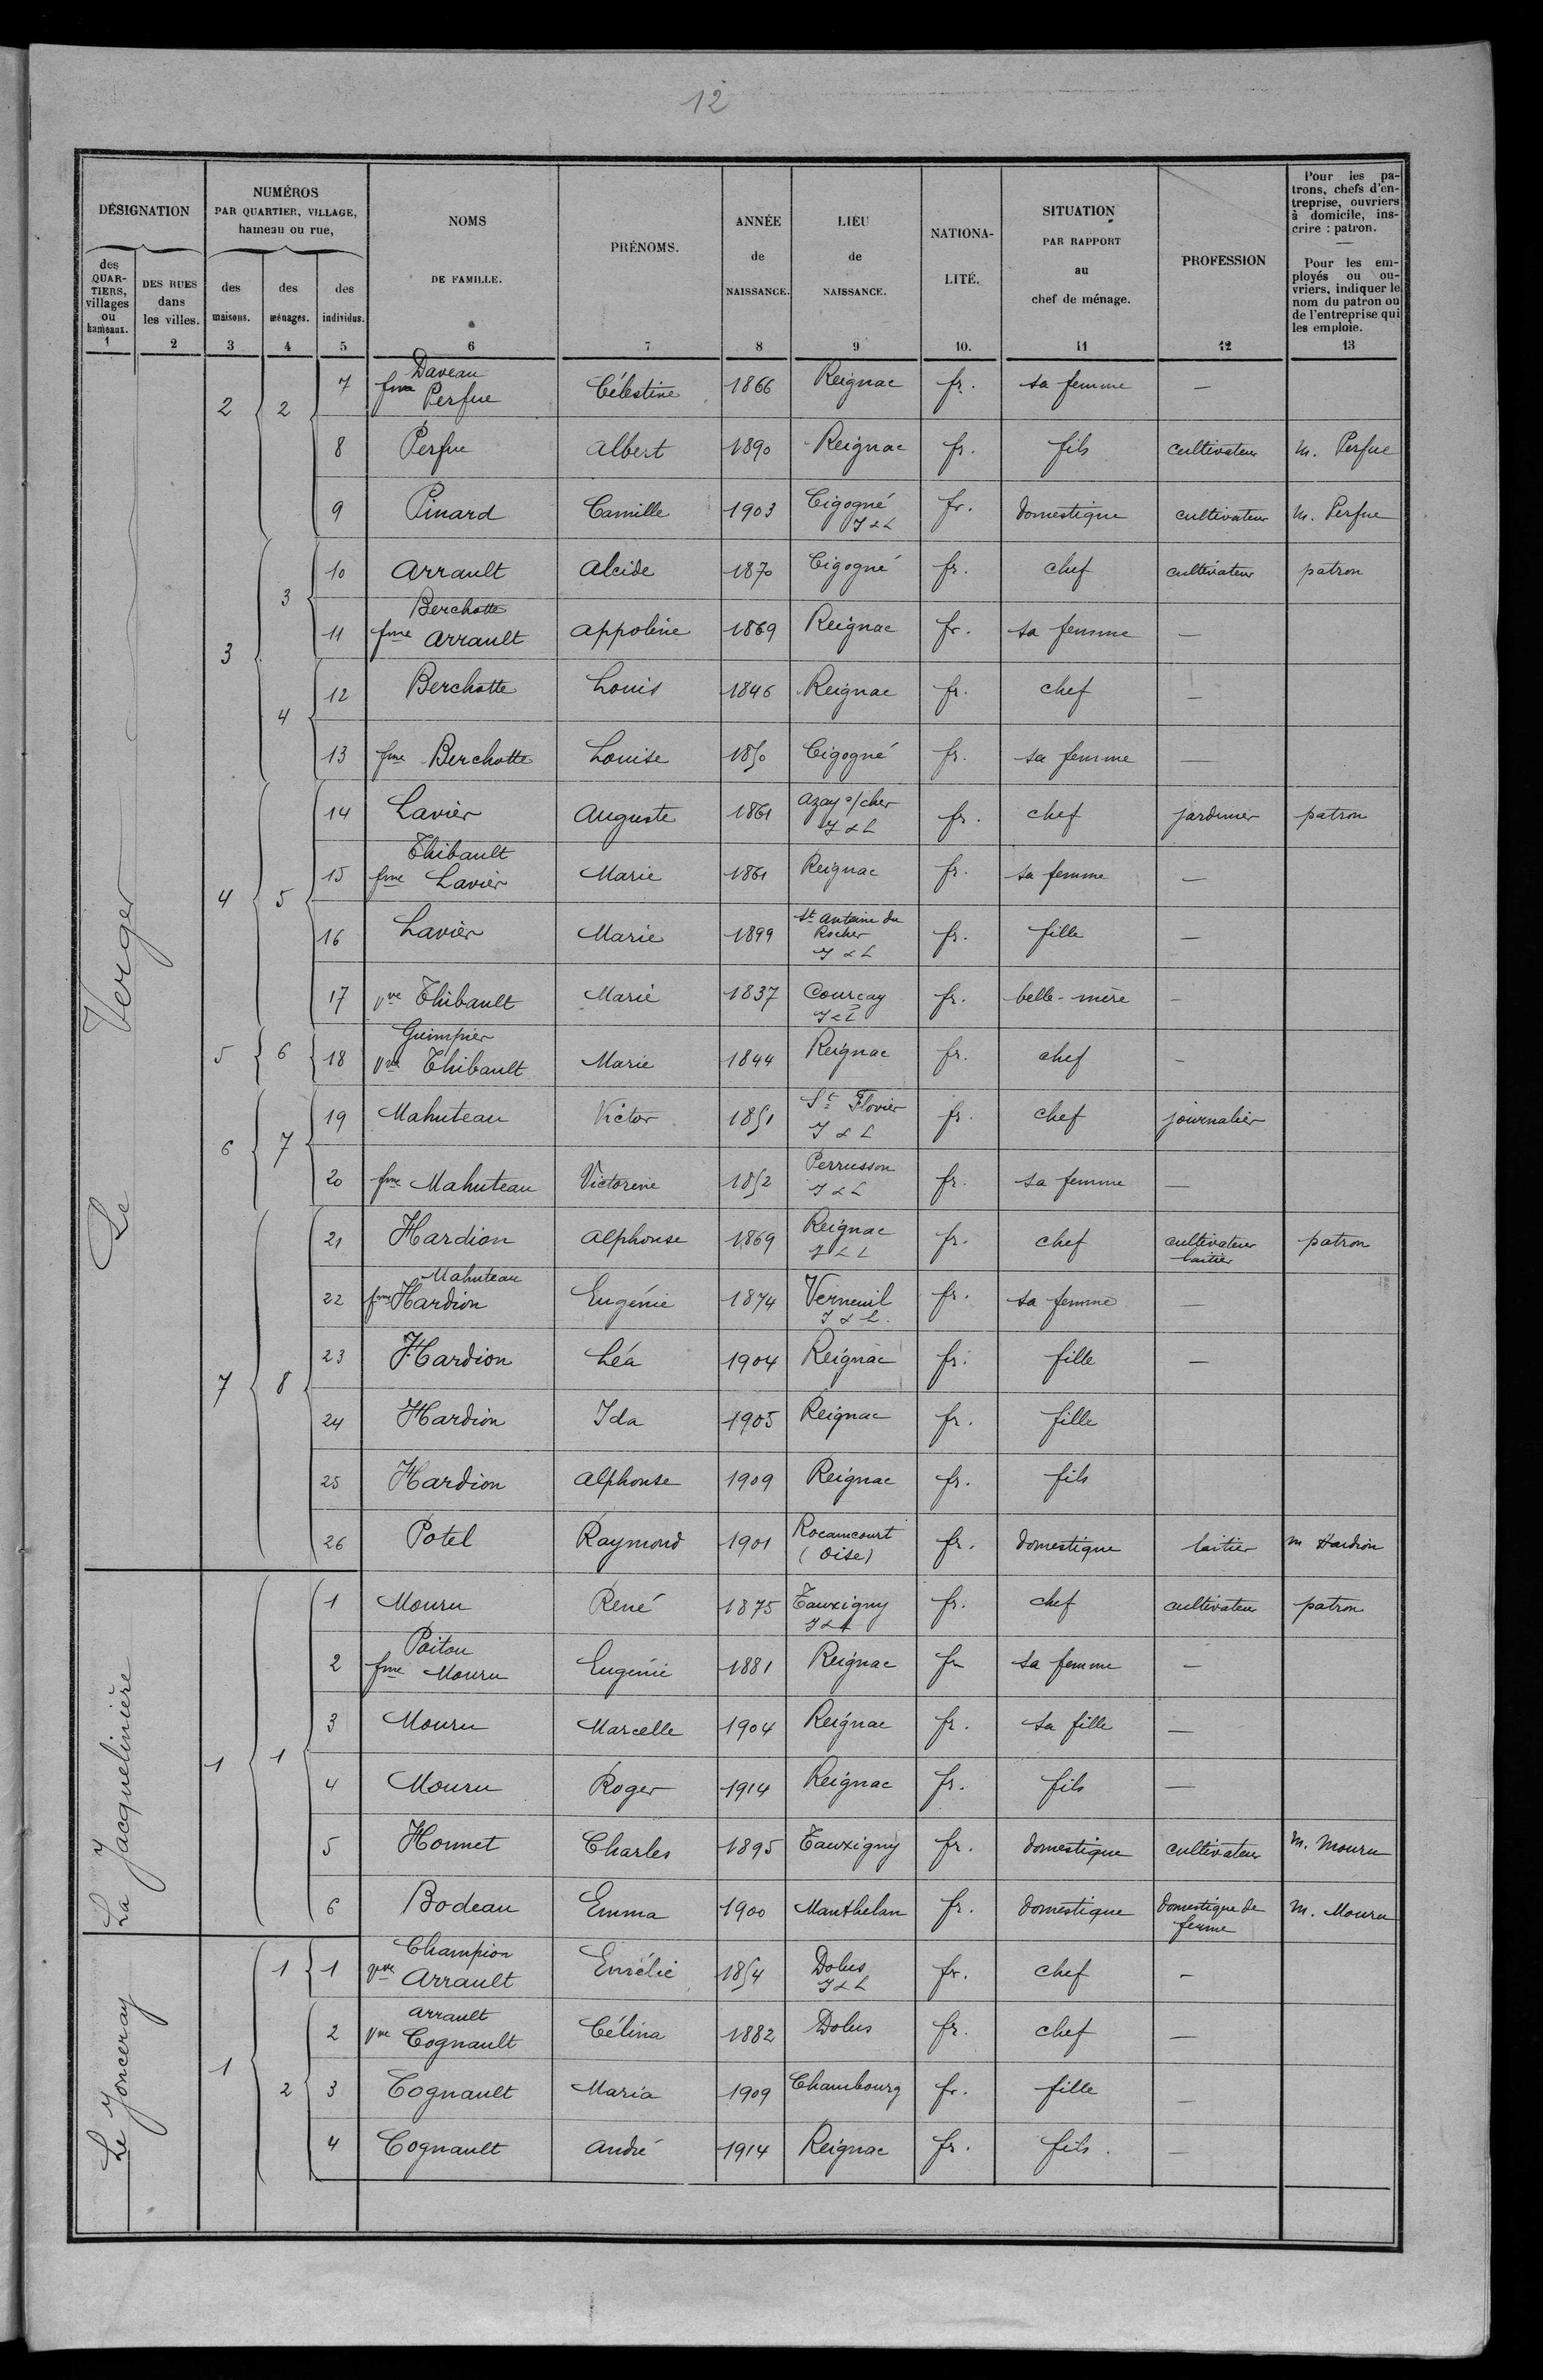 12
DÉSIGNATION
NUMÉROS
PAR QUARTIER, VILLAGE,
hameau ou rue,
NOMS
DE FAMILLE.
PRÉNOMS.
ANNÉE
de
NAISSANCE.
LIEU
de
NAISSANCE.
NATIONA-
LITÉ.
SITUATION
PAR RAPPORT
au
chef de ménage.
PROFESSION
Pour les pa-
trons, chefs d'en-
treprise, ouvriers
à domicile, ins-
crire : patron.
Pour les em-
ployés ou ou-
vriers, indiquer le
nom du patron ou
de l'entreprise qui
les emploie.
des
QUAR-
TIERS,
villages
ou
hameaux.
DES RUES
dans
les villes.
des
maisons.
des
ménages.
des
individus.
1 2 3 4 5 6 7 8 9 10. 11 12 13
Le Verger
Daveau
2 2 7 fme Perfue Célestine 1866 Reignac fr. sa femme —
8 Perfue Albert 1890 Reignac fr. fils cultivateur M. Perfue
9 Pinard Camille 1903 Cigogné I & L fr. domestique cultivateur M. Perfue
3 3 10 Arrault Alcide 1870 Cigogné fr. chef cultivateur patron
Berchotte
11 fme Arrault Appoline 1869 Reignac fr. sa femme —
4 12 Berchotte Louis 1846 Reignac fr. chef —
13 fme Berchotte Louise 1850 Cigogné fr. sa femme —
4 5 14 Lavier Auguste 1861 Azay s/cher I & L fr. chef jardinier patron
Thibault
15 fme Lavier Marie 1861 Reignac fr. sa femme —
16 Lavier Marie 1899 St Antoine du Rocher I & L fr. fille —
17 vve Thibault Marie 1837 Courçay I & L fr. belle-mère —
Guimpier
5 6 18 vve Thibault Marie 1844 Reignac fr. chef —
6 7 19 Mahuteau Victor 1851 St Flovier I & L fr. chef journalier
20 fme Mahuteau Victorine 1852 Perrusson I & L fr. sa femme —
7 8 21 Hardion Alphonse 1869 Reignac I & L fr. chef cultivateur laitier patron
Mahuteau
22 fme Hardion Eugénie 1874 Verneuil I & L. fr. sa femme —
23 Hardion Léa 1904 Reignac fr. fille —
24 Hardion Ida 1905 Reignac fr. fille
25 Hardion Alphonse 1909 Reignac fr. fils
26 Potel Raymond 1901 Rocamcourt (Oise) fr. domestique laitier M Hardion
La Jacquelinière
1 1 1 Mouru René 1875 Tauxigny I & L fr. chef cultivateur patron
Poitou
2 fme Mouru Eugénie 1881 Reignac fr sa femme —
3 Mouru Marcelle 1904 Reignac fr. sa fille —
4 Mouru Roger 1914 Reignac fr. fils —
5 Honnet Charles 1895 Tauxigny fr. domestique cultivateur M. Mouru
6 Bodeau Emma 1900 Manthelan fr. domestique domestique de ferme M. Mouru
Le Yonceray
Champion
1 1 1 vve Arrault Emélie 1854 Dolus I & L fr. chef —
Arrault
2 2 vve Cognault Célina 1882 Dolus fr. chef —
3 Cognault Maria 1909 Chambourg fr. fille —
4 Cognault André 1914 Reignac fr. fils. —